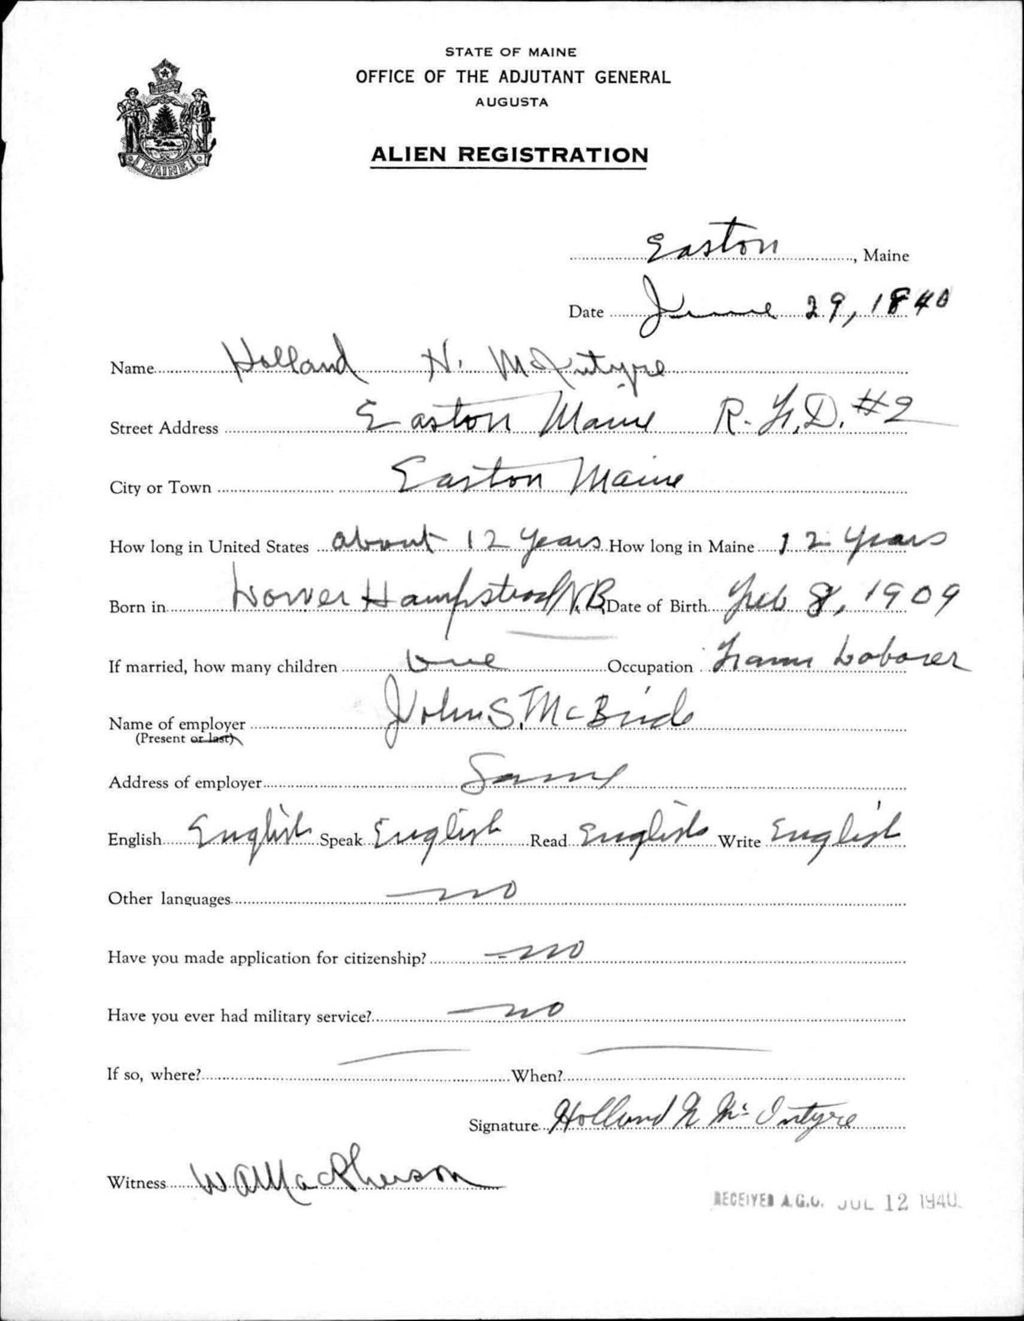 STATE OF MAINE
OFFICE OF THE ADJUTANT GENERAL
AUGUSTA
ALIEN REGISTRATION
MAINE
Easton, Maine
Date June 29, 1840
Name Holland N. McIntyre
Street Address Easton Maine R.F.D. #2
City or Town Easton Maine
How long in United States about 12 years How long in Maine 12 years
Born in Lower Hampstead N.B. Date of Birth Feb 8, 1909
If married, how many children one Occupation Farm Laborer
Name of employer John S. McBride
(Present or last)
Address of employer Same
English English Speak English Read English Write English
Other languages no
Have you made application for citizenship? no
Have you ever had military service? no
If so, where? When?
Signature Holland N McIntyre
Witness W A MacPherson
RECEIVED A.G.O. JUL 12 1940